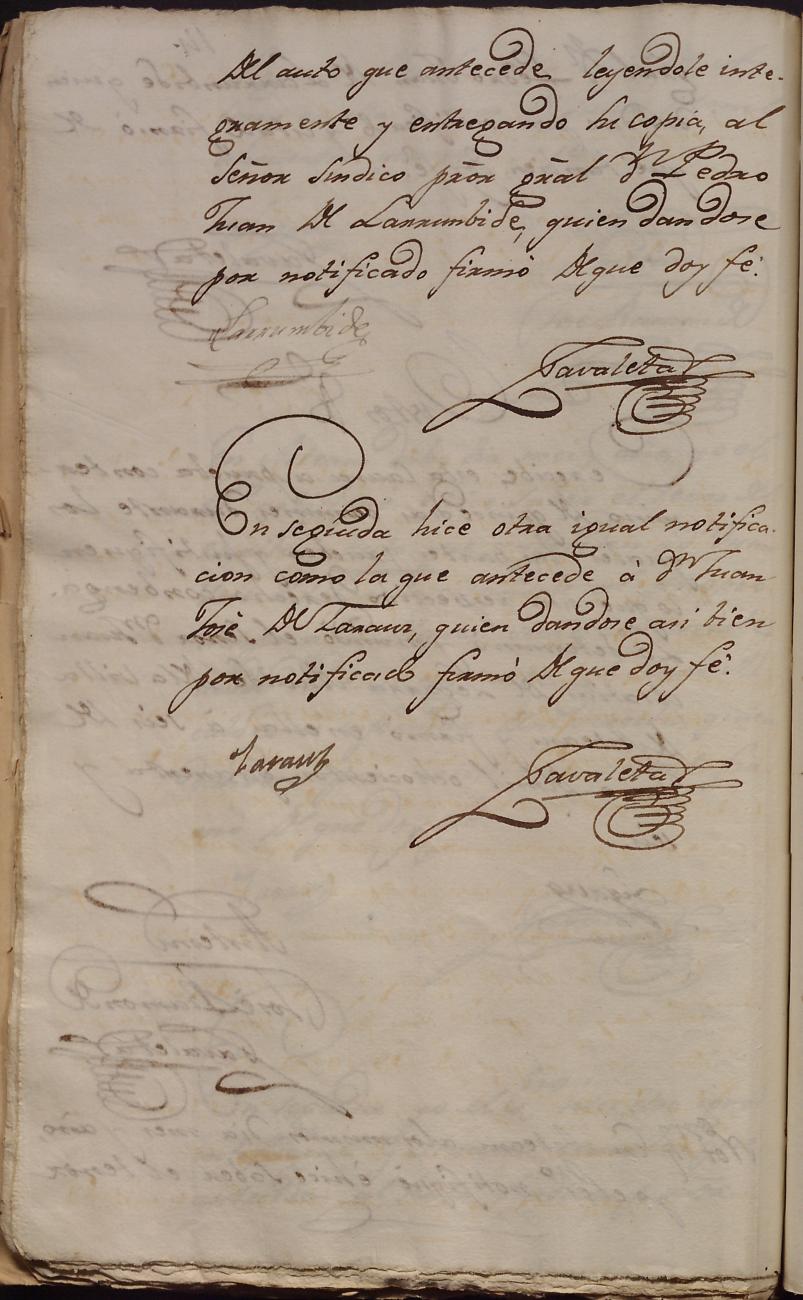 Del auto que antecede leyendole inte-
gramente y entregando su copia, al
Señor Sindico prōr gr̄al dn Pedro
Juan de Larrumbide, quien dandose
por notificado firmó de que doy fé.
Larrumbide
Zavaleta
En seguida hice otra igual notifica-
cion como la que antecede à Dn Juan
José de Zarauz, quien dandose asi bien
por notificado firmó de que doy fé.
Zarauz
Zavaleta